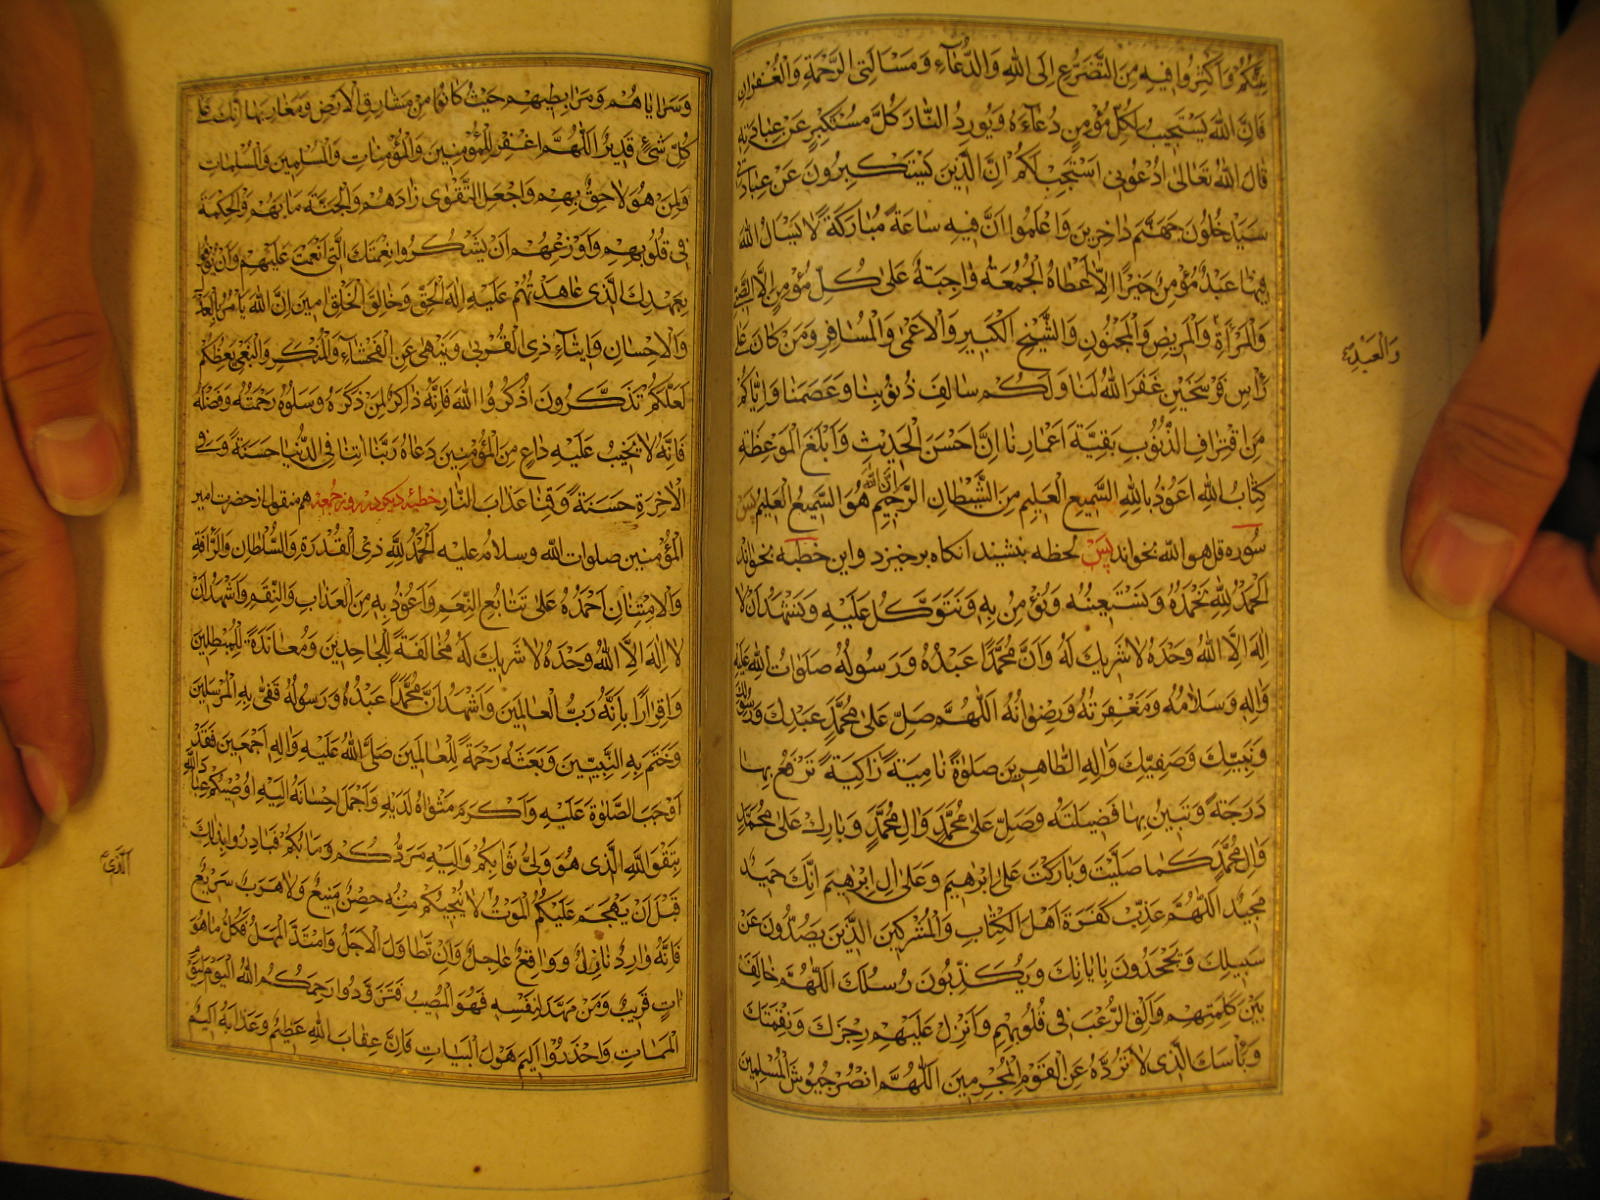 عنكم واكثروا فيه من التضرع الى الله والدعاء ومسالتى الرحمة والغفران
فان الله يستجيب لكل مؤمن دعاءه ويورد النار كل مستكبر عن عبادته
قال الله تعالى ادعونى استجب لكم ان الذين يستكبرون عن عبادتى
سيدخلون جهنم داخرين واعلموا ان فيه ساعة مباركة لا يسال الله
فيها عبد مؤمن خيرا الا اعطاه الجمعة واجبة على كل مؤمن الا الصبى
والمرأة والمريض والمجنون والشيخ الكبير والاعمى والمسافر ومن كان على
والعبد
رأس فرسخين غفر الله لنا ولكم سالف ذنوبنا وعصمنا واياكم
من اقتراف الذنوب بقية اعمارنا ان احسن الحديث وابلغ الموعظة
كتاب الله اعوذ بالله السميع العليم من الشيطان الرجيم ان الله هو السميع العليم پس
سوره قل هو الله بخواند پس لحظه بنشيند انكاه برخيزد واين خطبه بخواند
الحمد لله نحمده ونستعينه ونؤمن به ونتوكل عليه ونشهد ان لا
اله الا الله وحده لا شريك له وان محمدا عبده ورسوله صلوات الله عليه
واله وسلامه ومغفرته ورضوانه اللهم صل على محمد عبدك ورسولك
ونبيك وصفيك واله الطاهرين صلوة نامية زاكية ترفع بها
درجته وتبين بها فضيلته وصل على محمد وال محمد وبارك على محمد
وال محمد كما صليت وباركت على ابرهيم وعلى ال ابرهيم انك حميد
مجيد اللهم عذب كفرة اهل الكتاب والمشركين الذين يصدون عن
سبيلك ويجحدون باياتك ويكذبون رسلك اللهم خالف
بين كلمتهم والق الرعب فى قلوبهم وانزل عليهم رجزك ونقمتك
وبأسك الذى لا ترده عن القوم المجرمين اللهم انصر جيوش المسلمين
وسراياهم ومرابطيهم حيث كانوا من مشارق الارض ومغاربها انك على
كل شئ قدير اللهم اغفر للمؤمنين والمؤمنات والمسلمين والمسلمات
ولمن هو لاحق بهم واجعل التقوى زادهم والجنة مابهم والحكمة
فى قلوبهم واوزعهم ان يشكروا نعمتك التى انعمت عليهم وان يوفوا
بعهدك الذى عاهدتهم عليه اله الحق وخالق الخلق امين ان الله يامر بالعدل
والاحسان وايتاء ذى القربى وينهى عن الفحشاء والمنكر والبغى يعظكم
لعلكم تذكرون اذكروا الله فانه ذاكر لمن ذكره وسلوه رحمته وفضله
فانه لا يخيب عليه داع من المؤمنين دعاه ربنا اتنا فى الدنيا حسنة وفى
الاخرة حسنة وقنا عذاب النار خطبه ديكر در روز جمعه هم منقول از حضرت امير
المؤمنين صلوات الله وسلامه عليه الحمد لله ذى القدرة والسلطان والرأفة
والامتنان احمده على تتابع النعم واعوذ به من العذاب والنقم واشهد ان
لا اله الا الله وحده لا شريك له مخالفة للجاحدين ومعاندة للمبطلين
واقرارا بانه رب العالمين واشهد ان محمدا عبده ورسوله قفى به المرسلين
وختم به النبيين وبعثه رحمة للعالمين صلى الله عليه واله اجمعين فقد
اوجب الصلوة عليه واكرم مثواه لديه واجمل احسانه اليه اوصيكم عباد الله
بتقوى الله الذى هو ولى ثوابكم واليه مردكم ومابكم فبادروا بذلك
الذى
قبل ان يهجم عليكم الموت لا ينجيكم منه حصن منيع ولا هرب سريع
فانه وارد نازل وواقع عاجل وان تطاول الاجل وامتد المهل فكل ما هو
ات قريب ومن مهد لنفسه فهو المصيب فتزودوا رحمكم الله اليوم ليوم
الممات واحذروا اليم هول البيات فان عقاب الله عظيم وعذابه اليم